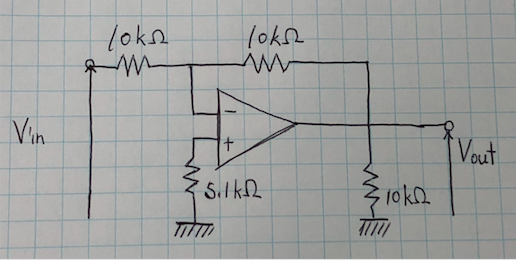 10kΩ
10kΩ
Vin
-
+
5.1kΩ
10kΩ
Vout